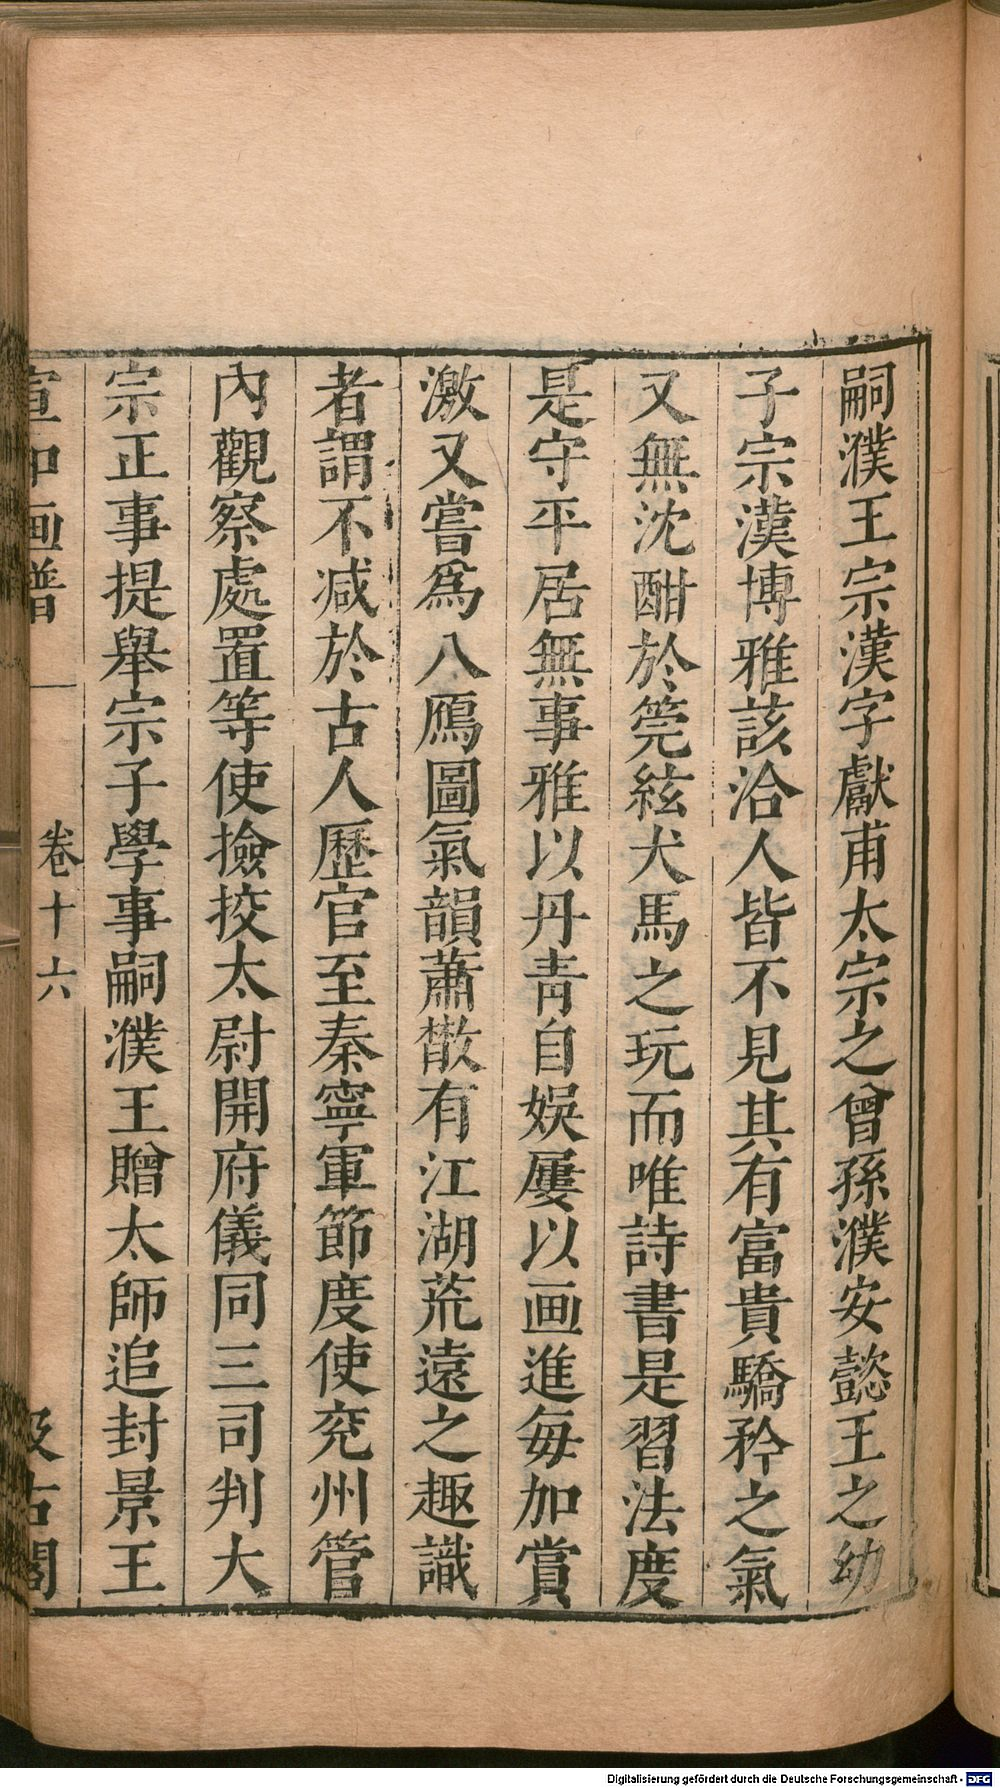 嗣濮王宗漢字獻甫太宗之曾孫濮安懿王之幼
子宗漢博雅該洽人皆不見其有富貴驕矜之氣
又無沈酣於筦絃犬馬之玩而唯詩書是習法度
是守平居無事雅以丹青自娛屢以画進每加賞
激又嘗爲八鴈圖氣韻蕭散有江湖荒遠之趣識
者謂不减於古人歷官至秦寧軍節度使兖州管
內觀察處置等使撿挍太尉開府儀同三司判大
宗正事提舉宗子學事嗣濮王贈太師追封景王
宣和画譜 卷十六 汲古閣
Digitalisierung gefördert durch die Deutsche Forschungsgemeinschaft - DFG